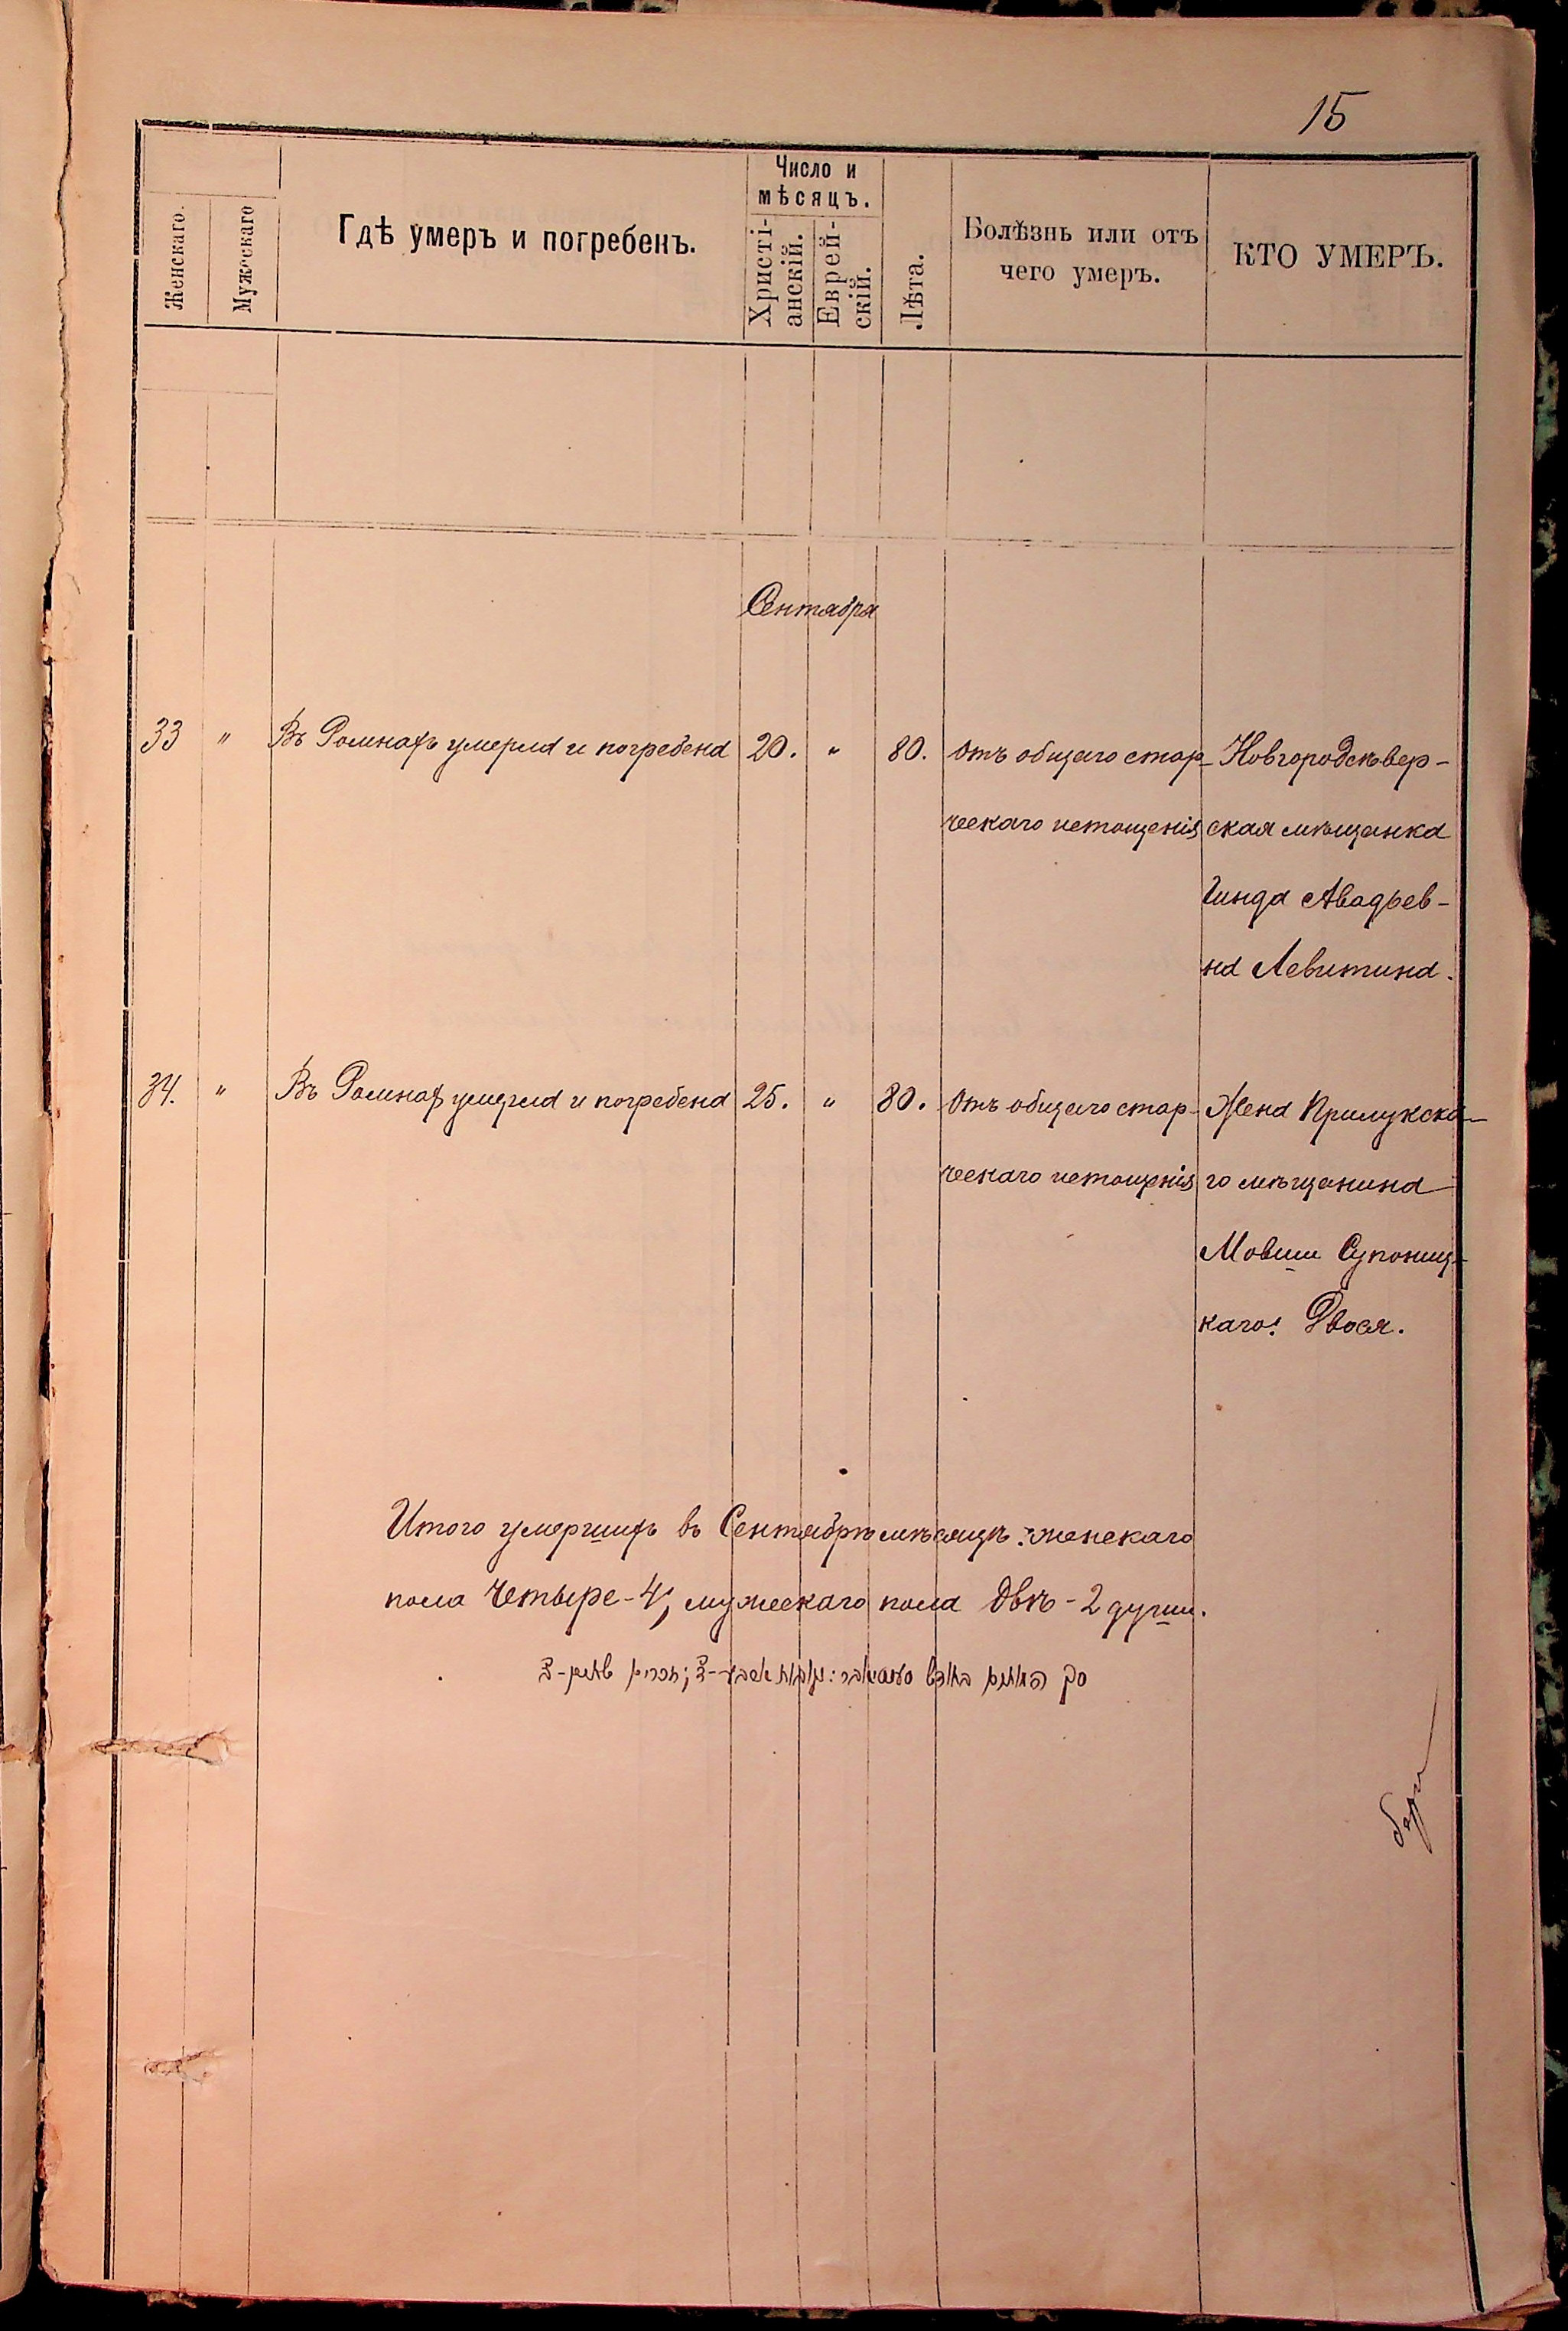 15
Женскаго.
Мужескаго
Гдѣ умеръ и погребенъ.
Число и
мѣсяцъ.
Христі-
анскій.
Еврей-
скій.
Лѣта.
Болѣзнь или отъ
чего умеръ.
КТО УМЕРЪ.
Сентября
33 " Въ Ромнахъ умерла и погребена 20. " 80. Отъ общаго стар- Новгородсѣвер-
ческаго истощенія ская мѣщанка
Гинда Авадьев-
на Левитина.
34. " Въ Ромнах умерла и погребена 25. " 80. Отъ общаго стар- Жена Прилукска-
ческаго истощенія го мѣщанина
Мовши Супониц-
каго: Двося.
Итого умершихъ въ Сентябрѣ мѣсяцѣ: женскаго
пола Четыре-4; мужескаго пола Двѣ-2 души.
סך המתים בחדש